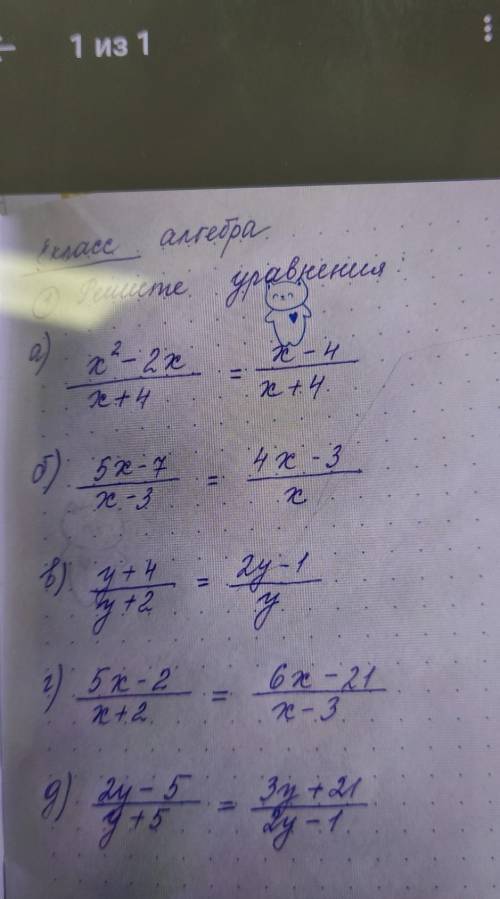 1 из 1
класс алгебра
① Решите уравнения:
а) (x² - 2x)/(x + 4) = (x - 4)/(x + 4)
б) (5x - 7)/(x - 3) = (4x - 3)/x
в) (y + 4)/(y + 2) = (2y - 1)/y
г) (5x - 2)/(x + 2) = (6x - 21)/(x - 3)
д) (2y - 5)/(y + 5) = (3y + 21)/(2y - 1)